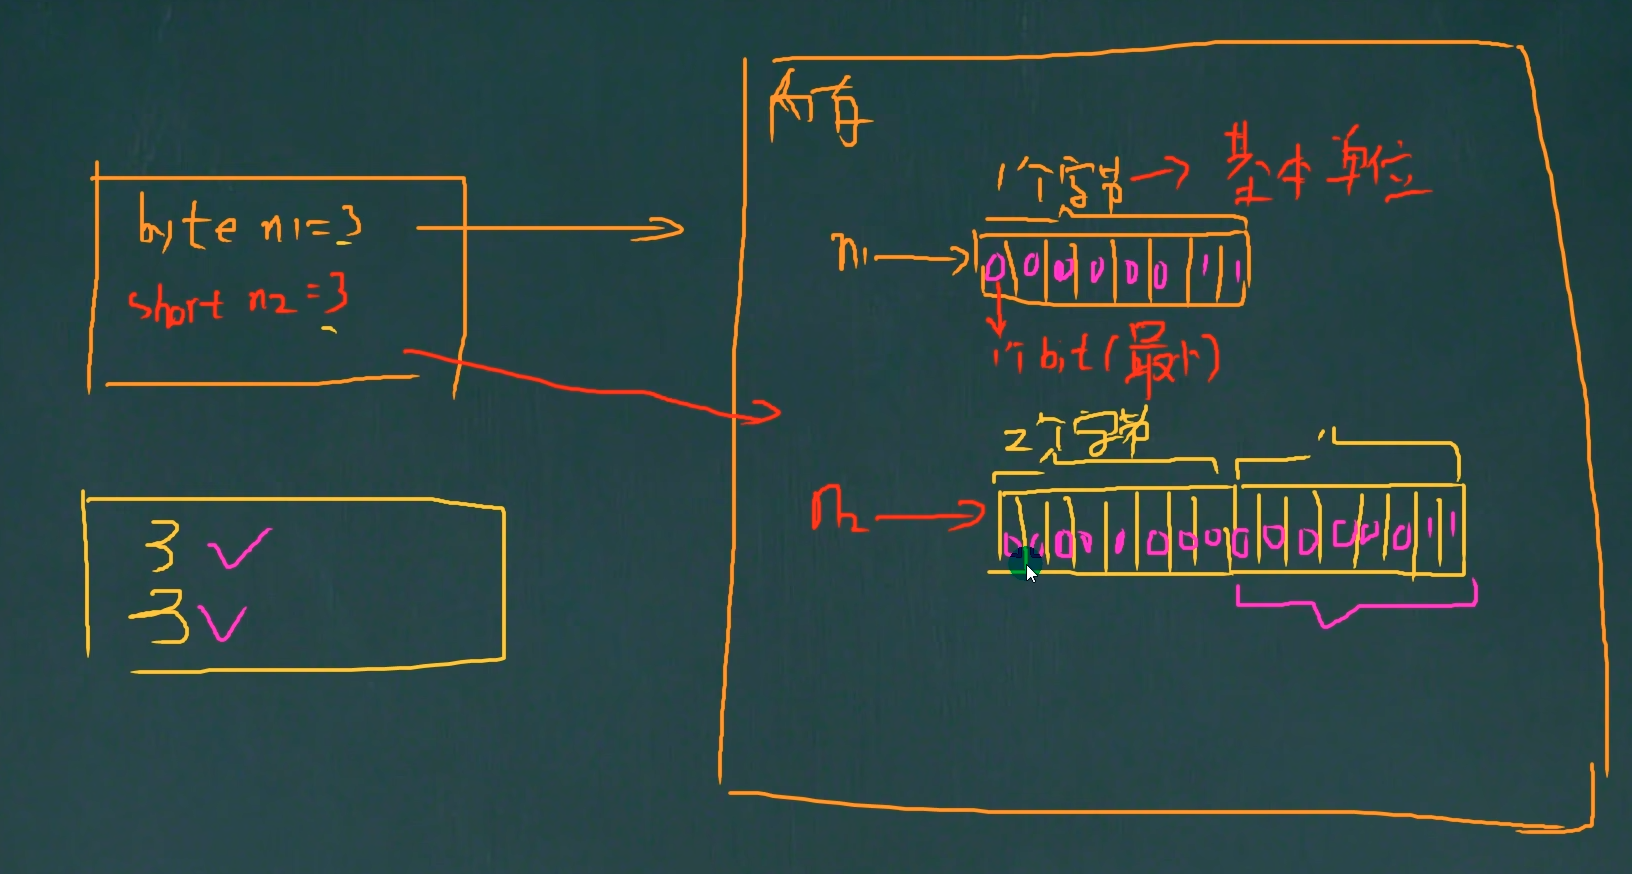 内存
byte n1=3
short n2=3
1个字节 → 基本单位
n1 → 0 0 0 0 0 0 1 1
1个bit(最小)
2个字节
n2 → 0 0 0 0 0 0 0 0 0 0 0 0 0 0 1 1
3 ✓
3 ✓